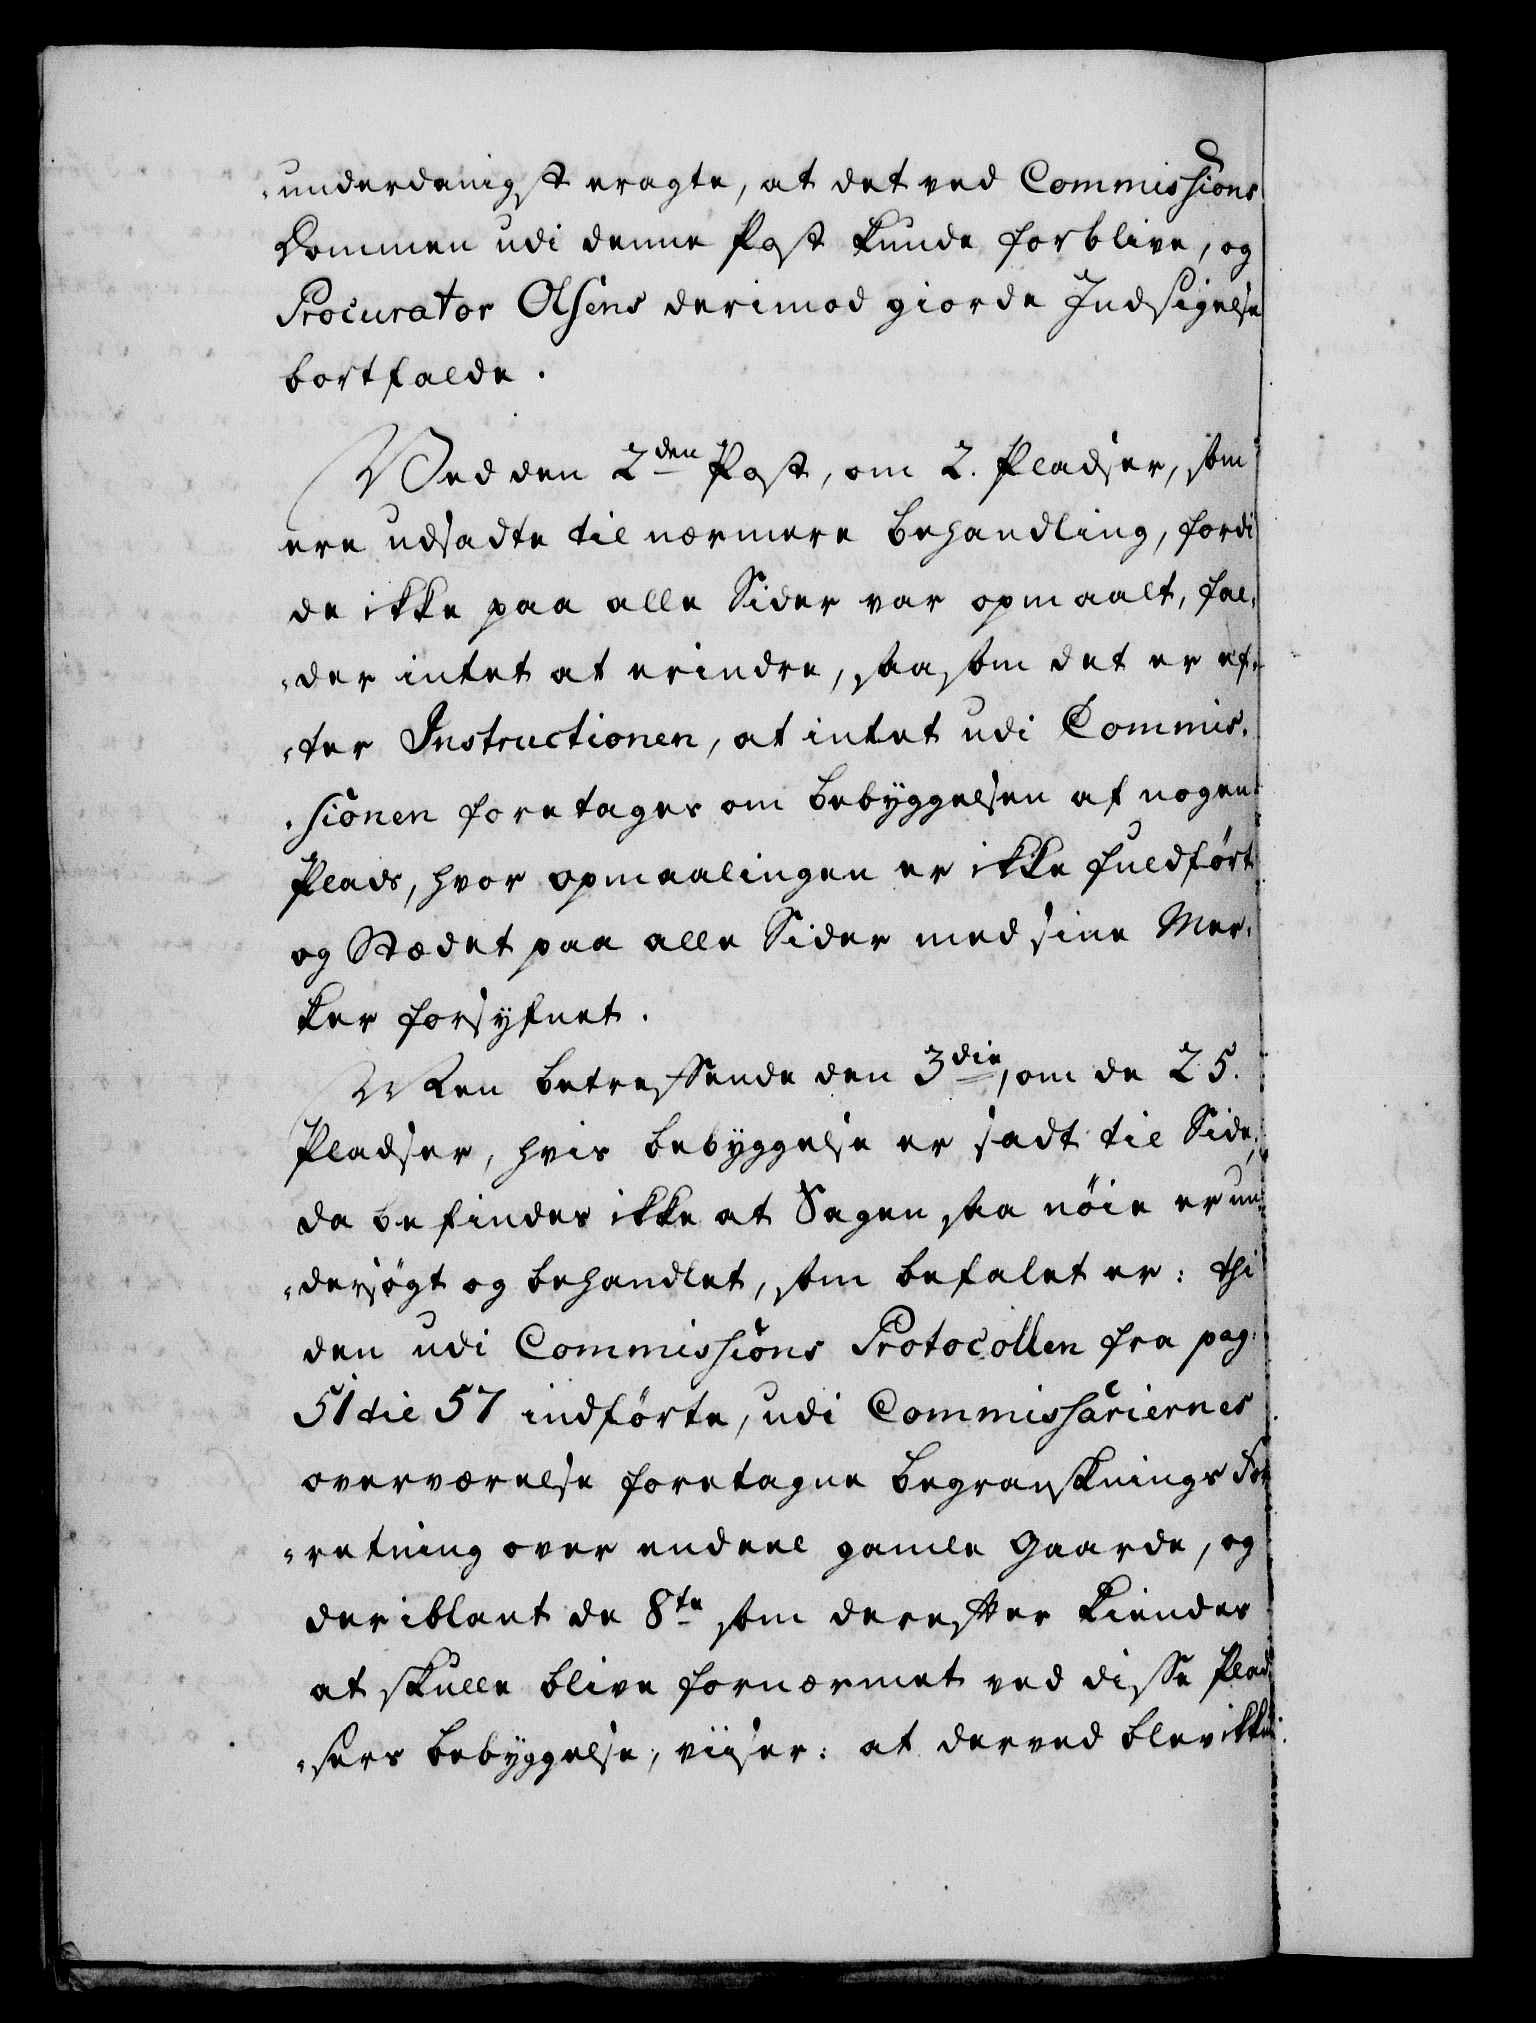 „underdanigst eragte, at det ved Commissions
Dommen udi denne Post kunde forblive, og
Procurator Olsens derimod giorde Indsigelse
bortfalde.
Ved den 2den Post, om 2. Pladser, som
ere udsadte til nærmere behandling, fordi
de ikke paa alle Sider var opmaalt, fal„
„der intet at erindre, saasom det er ef„
„ter Instructionen, at intet udi Commis„
„sionen foretages om bebyggelsen af nogen
Plads, hvor opmaalingen er ikke fuldført
og Stædet paa alle Sider med sine Mer„
ker forsyfnet.
Men betreffende den 3die, om de 25.
Pladser, hvis bebyggelse er sadt til Side,
da befindes ikke at Sagen saa nöie er un„
„dersögt og behandlet, som befalet er: thi
den udi Commissions Protocollen fra pag:
51 til 57 indførte, udi Commissariernes
overværelse foretagne begranskings For„
„retning over endeel gamle Gaarde, og
deriblant de 8te som derefter kiendes
at skulle blive fornærmet ved disse Plad„
„sers bebyggelse, viiser: at derved blev ikke